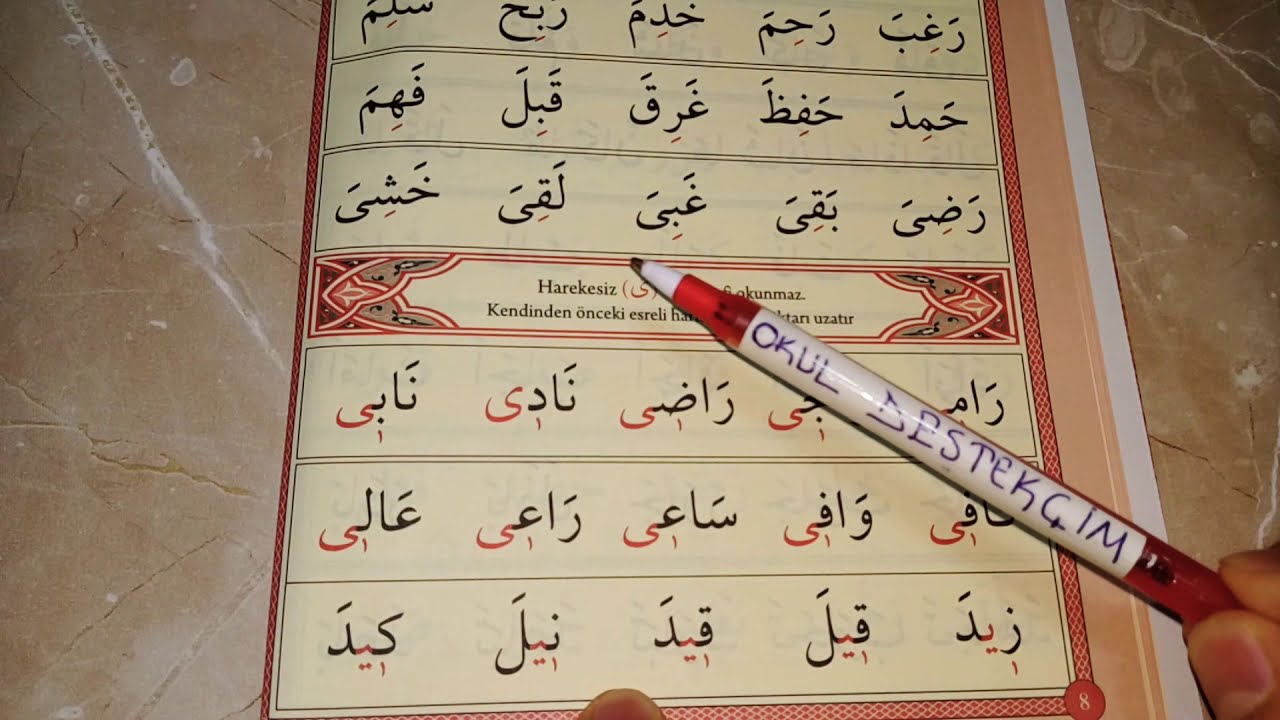 رَغِبَ رَحِمَ خَدِمَ رَبِحَ سَلِمَ
حَمِدَ حَفِظَ غَرِقَ قَبِلَ فَهِمَ
رَضِىَ بَقِىَ غَبِىَ لَقِىَ خَشِىَ
Harekesiz (ى) okunmaz.
Kendinden önceki esreli uzatır
رَاضٖى نَادٖى نَابٖى
كَافٖى وَافٖى سَاعٖى رَاعٖى عَالٖى
زٖيدَ قٖيلَ قٖيدَ نٖيلَ كٖيدَ
8
OKUL DESTEKÇİM